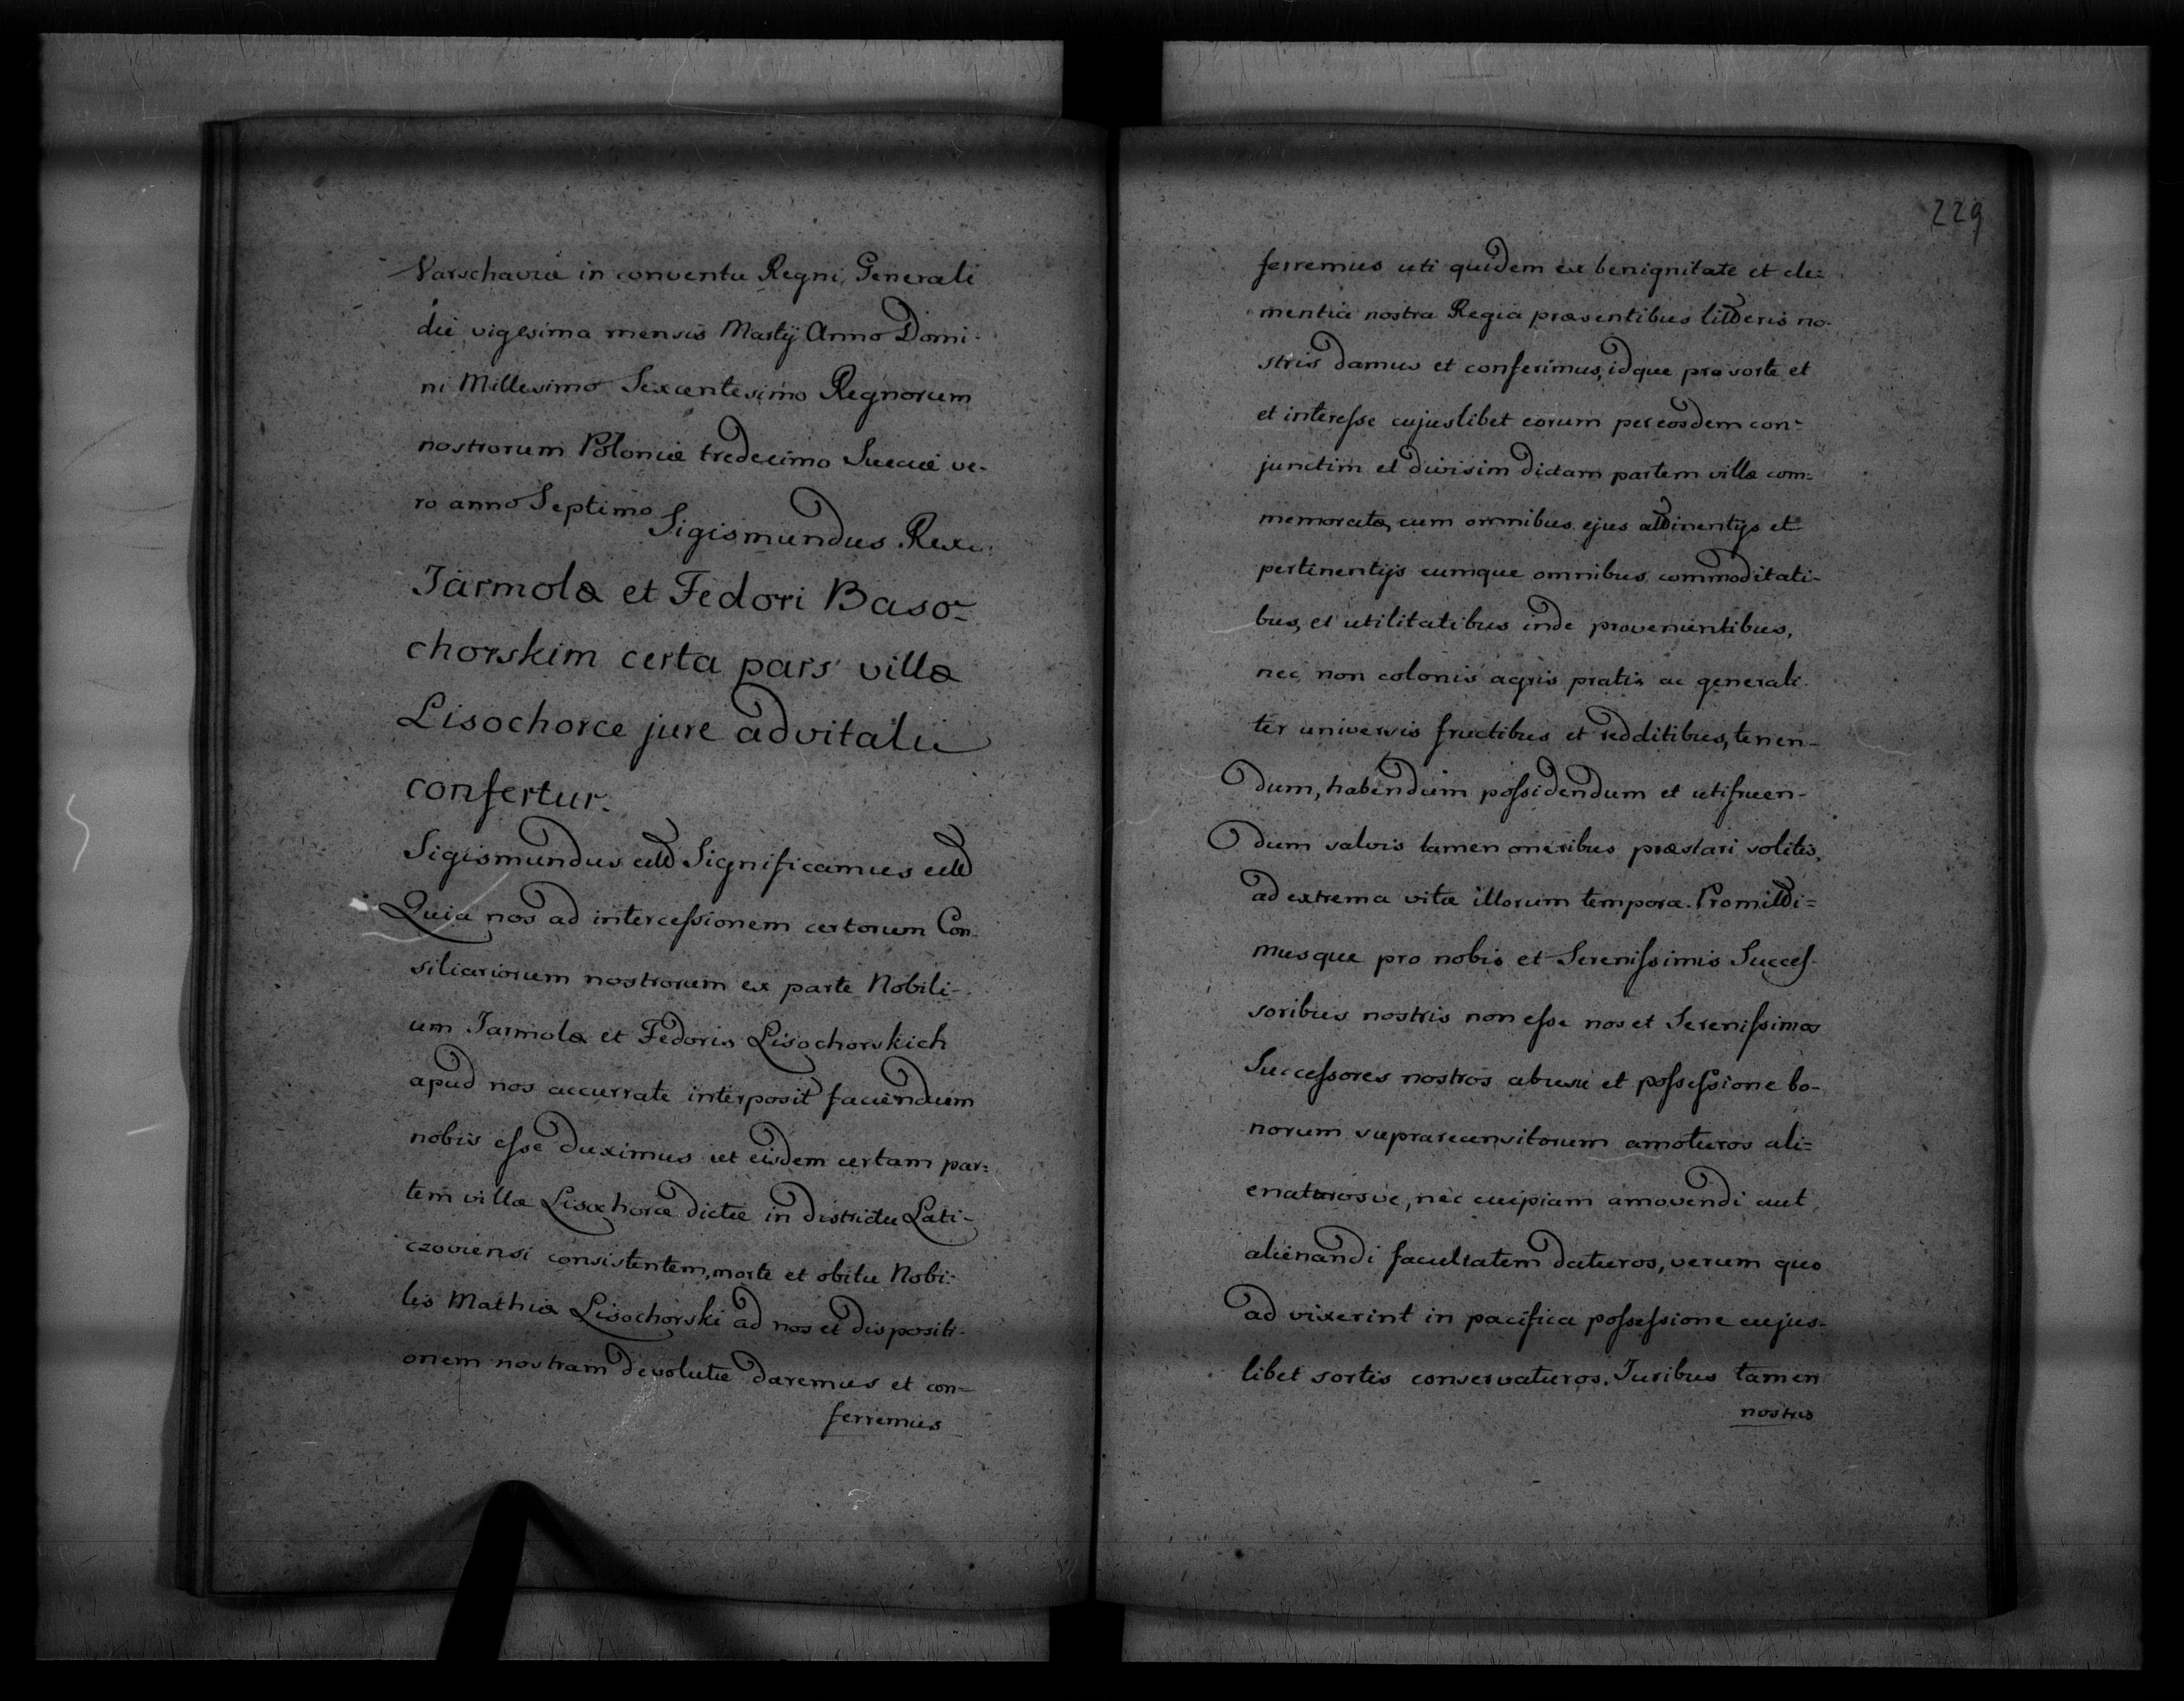 Varschaviæ in conventu Regni Generali
die vigesima mensis Martij Anno Domi-
ni Millesimo Sexcentesimo Regnorum
nostrorum Poloniæ tredecimo Sueciæ ve-
ro anno Septimo
Sigismundus Rex.
Jarmolæ et Fedori Baso-
chorskim certa pars villæ
Lisochorce jure advitali
confertur.
Sigismundus ettc Significamus ettc
Quia nos ad intercessionem certorum Con-
siliariorum nostrorum ex parte Nobili-
um Jarmolæ et Fedoris Lisochorskich
apud nos accurrate interposit faciendum
nobis esse duximus ut eisdem certam par=
tem villæ Lisochorce dictæ in districtu Lati-
czoviensi consistentem, morte et obitu Nobi-
lis Mathiæ Lisochorski ad nos et dispositi-
onem nostram devolutæ daremus et con-
ferremus
229
ferremus uti quidem ex benignitate et cle=
mentia nostra Regia præsentibus litteris no-
stris damus et conferimus, idque pro sorte et
et interesse cujuslibet eorum per eosdem con-
junctim et divisim dictam partem villæ com=
memoratæ, cum omnibus ejus attinentijs et
pertinentijs cumque omnibus commoditati-
bus, et utilitatibus inde provenientibus,
nec non colonis agris pratis ac generali-
ter universis fructibus et redditibus, tenen-
dum, habendum possidendum et utifruen-
dum salvis tamen oneribus præstari solitis,
ad extrema vitæ illorum tempora. Promitti=
musque pro nobis et Serenissimis Succes-
soribus nostris non esse nos et Serenissimos
Successores nostros abusu et possessione bo-
norum suprarecensitorum amoturos ali=
enaturosve, nec cuipiam amovendi aut
alienandi facultatem daturos, verum quo
ad vixerint in pacifica possessione cujus-
libet sortis conservaturos. Juribus tamen
nostris